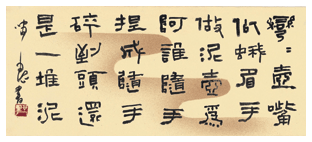 彎〻壺嘴
似蛾眉手
做泥壺爲
阿誰隨手
捏成隨手
碎到頭還
是一堆泥